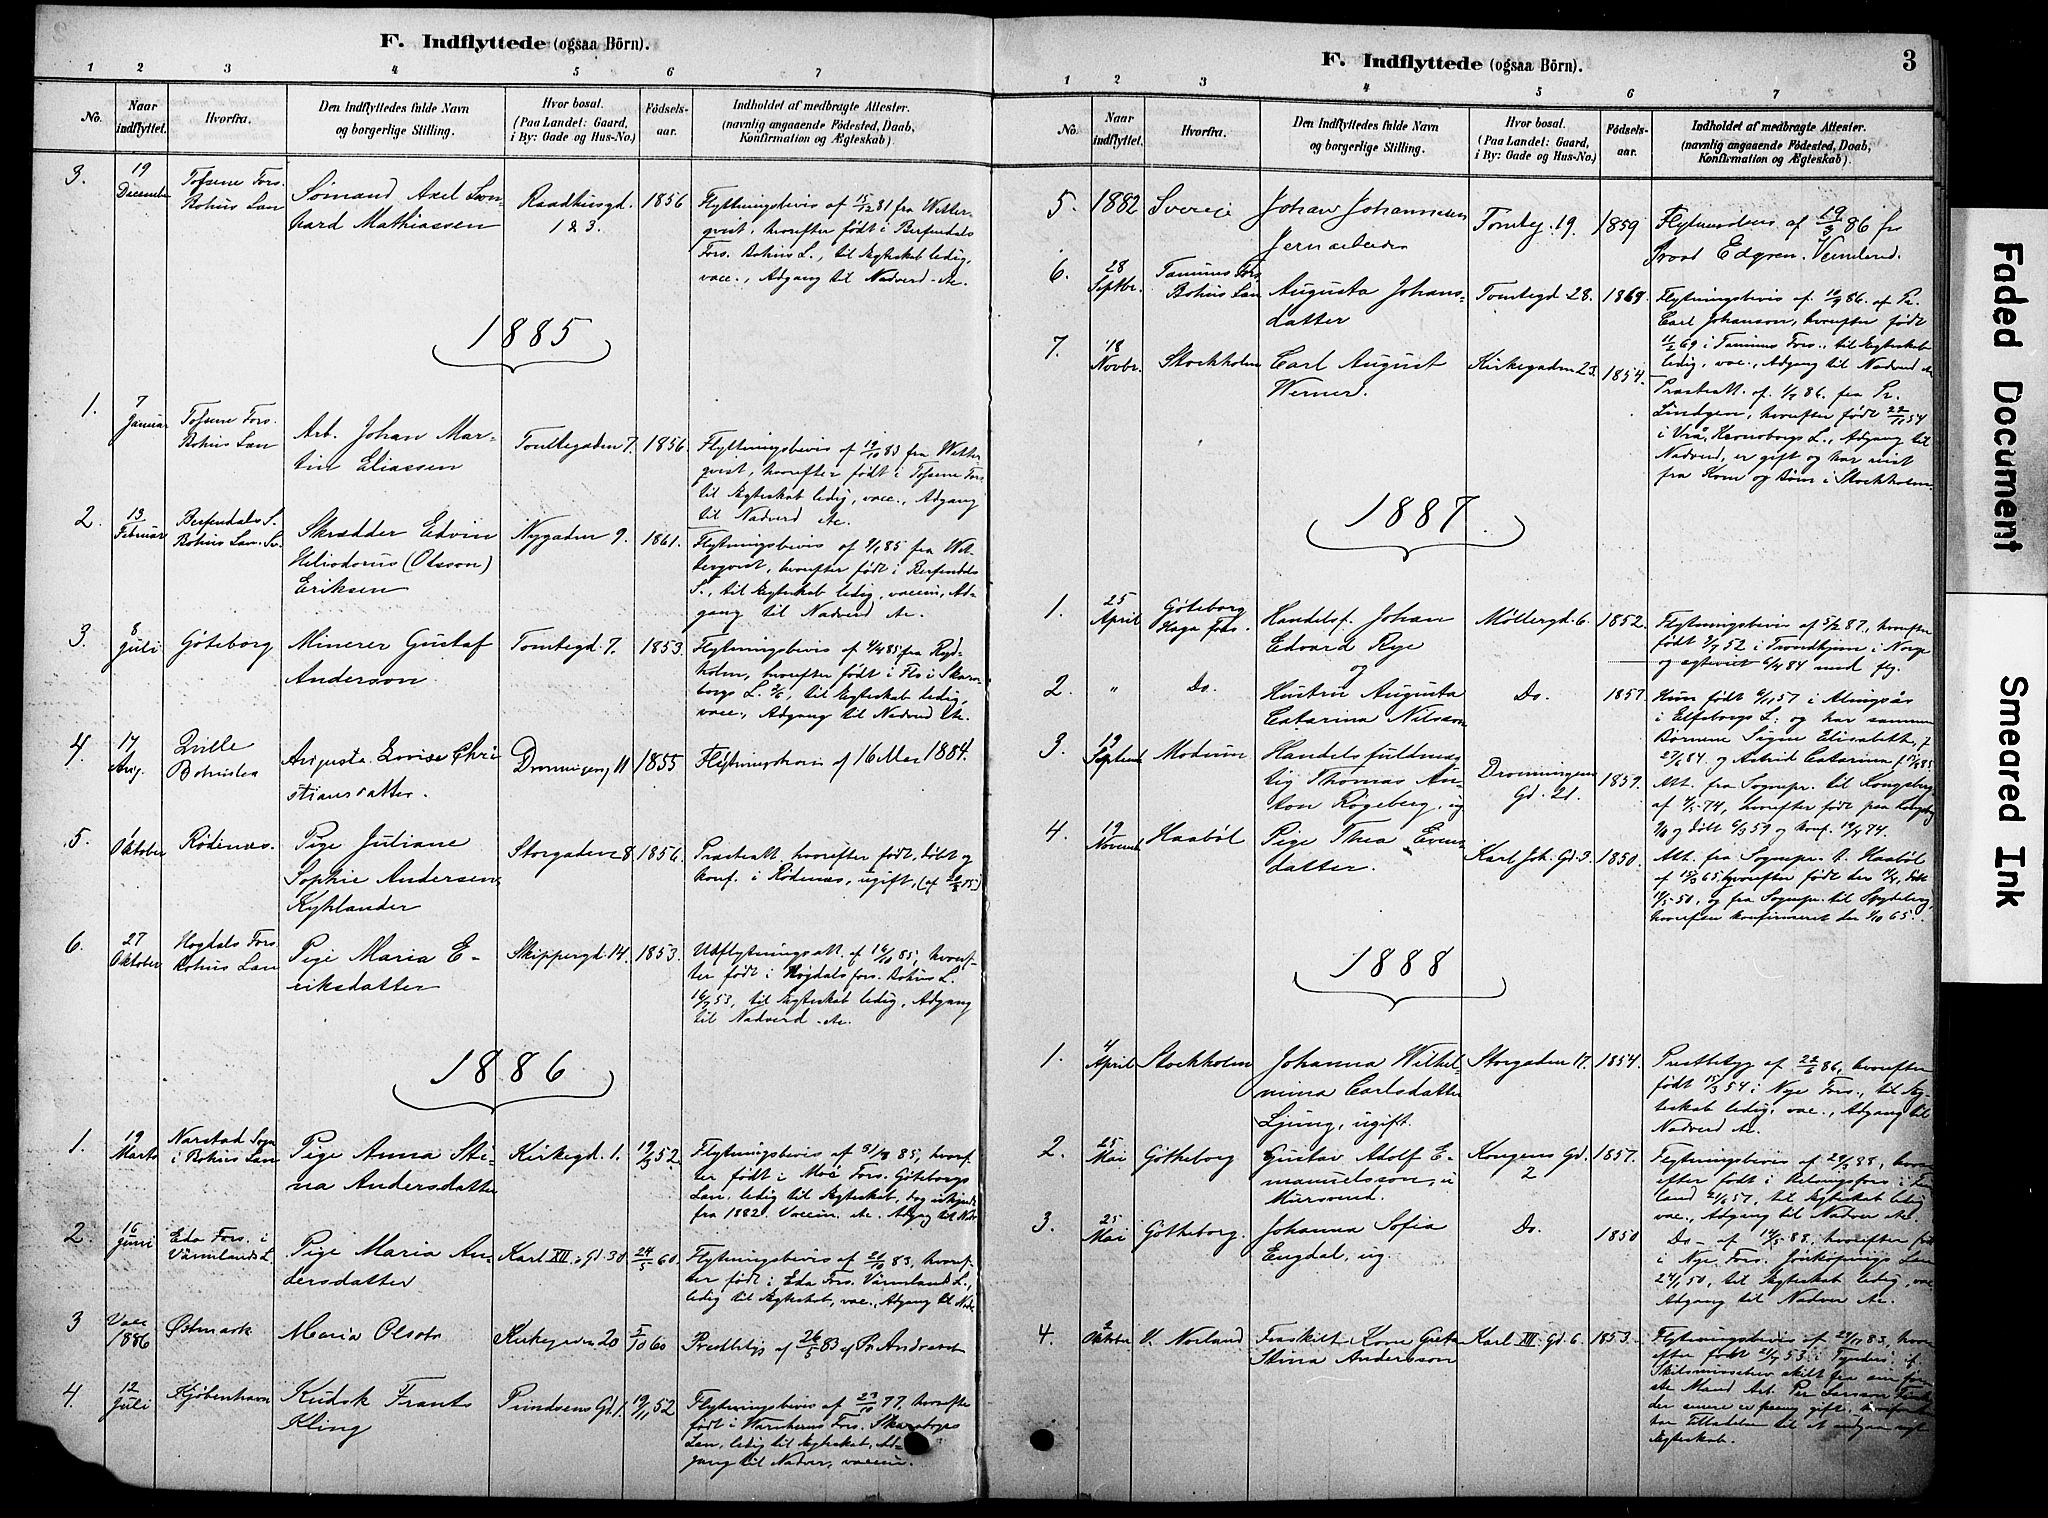 F. Indflyttede (ogsaa Börn).
1 2 3 4 5 6 7
No. Naar indflyttet. Hvorfra. Den Indflyttedes fulde Navn og borgerlige Stilling. Hvor bosat. (Paa Landet: Gaard, i By: Gade og Hus-No.) Födsels-aar. Indholdet af medbragte Attester. (navnlig angaaende Födested, Daab, Konfirmation og Ægteskab).
3. 19 December Tossene Fors. Bohus Lan Sømand Axel Mathiassen Raadhusgd. 1 & 3. 1856
Flytningsbevis af 15/12 81 fra Wetter-
qvist, hvorefter født i Berfendals
Fors. Bohus L., til Ægteskab ledig,
vacc., Adgang til Nadverd &c.
1885
1. 7 Januar Tossene Fors. Bohus Lan Arb. Johan Mar-
tin Eliassen Tomtegaden 7. 1856
Flytningsbevis af 19/10 83 fra Wetter
qvist, hvorefter født i Tossene Fors
til Ægteskab ledig, vacc., Adgang
til Nadverd &c.
2. 13 Februar Berfendals S. Bohus Lan. Sv. Skrædder Edvin
Heliodorus (Olsson)
Eriksen Nygaden 9. 1861.
Flytningsbevis af 85 fra Wet-
terqvist, hvorefter født i Berfendals
S., til Ægteskab ledig, vaccin, Ad-
gang til Nadverd &c.
3 8 Juli Göteborg Minerer Gustaf
Anderson Tomtegd. 7. 1853.
Flytningsbevis af 85 fra Ryd-
holm, hvorefter født i Flo i Skara-
borgs L., til Ægteskab ledig,
vacc., Adgang til Nadverd &c.
4 14 Aug. Qville Bohuslen Augusta Lovise Chri-
stiansdatter. Dronningeng 11 1855 Flytningsbevis af 16 Mai 1884.
5. Oktober Rödenes. Pige Juliane
Sophie Andersen
Kyhlander Storgaden 8 1856.
Præsteatt. hvorefter født, døbt og
konf. i Rødenæs, ugift,
6. 27 Oktober Hogdals Fors. Bohus Lan Pige Maria E-
riksdatter Skippergd. 14. 1853.
Udflytningsatt. af 16/10 85, hvoref-
ter født i Hogdals fors. Bohus L.
16/7 53, til Ægteskab ledig, Adgang
til Nadverd &c.
1886
1. 19 Marts Narstad Sogn i Bohus Lan Pige Anna Sti-
na Andersdatter Kirkegd. 1. 19/5 52
Flytningsbevis af 85, hvoref-
ter født i Moe Fors. Göteborgs
Lan, ledig til Ægteskab, dog
fra 1882. Vaccin. &c. Adgang til Nadv
2. 16 Juni Eda Fors. i Värmlands L. Pige Maria An-
dersdatter Karl XII.s Gd. 30 24/5 60.
Flytningsbevis af 83, hvoref-
ter født i Eda Fors. Värmlands L.,
ledig til Ægteskab, vacc., Adgang til Nadv
3 1886 Østmark Maria Olsdtr Kirkegaden 20 5/10 60 af 26/5 83 af Pr.
4. 12 Juli Kjøbenhavn Kudsk Frants
Kling Prindsens Gd. 1. 19/11 52
Flytningsbevis af 23/10 77, hvorefter
født i Fors. Skaraborgs
Lan, ledig til Ægteskab, Ad-
gang til Nadver, vaccin.
F. Indflyttede (ogsaa Börn).
3
1 2 3 4 5 6 7
No. Naar indflyttet. Hvorfra. Den Indflyttedes fulde Navn og borgerlige Stilling. Hvor bosat. (Paa Landet: Gaard, i By: Gade og Hus-No.) Födsels-aar. Indholdet af medbragte Attester. (navnlig angaaende Födested, Daab, Konfirmation og Ægteskab).
5. 1882 Sverige Johan Johannesen
Jernarbeider Tomteg. 19. 1859
af 19/3 86 fr
Edgren. Vermland.
6. 28 Septbr. Tanums Fors Bohus Lan Augusta Johans-
datter Tomtegd 28. 1869.
Flytningsbevis af 86. af Pr.
Carl Johanson, hvorefter født
11/2 69 i Tanums Fors., til Ægteskab
ledig, vacc., Adgang til Nadverd &c
7. 18 Novbr. Stockholm Carl August
Werner. Kirkegaden 23. 1854.
Præsteatt. af. 86. fra Pr.
Lindgren, hvorefter født 22/11 54
i Vrå, Kronoborgs L., Adgang til
Nadverd, er gift og har reist
fra Kone og Børn i Stockholm.
1887.
1. 25 April Göteborg Haga Fors. Handelsf. Johan
Edvard Rye
og Møllergd. 6. 1852.
Flytningsbevis af 87, hvorefter
født 52 i Trondhjem i Norge
og ægteviet 6/4 84 med flg.
2. " Do. Hustru Augusta
Catarina Nilsson Do. 1857.
Hun født 57 i Alingsås
i Elfsborgs L. og har sammen
Børnene Signe Elisabeth, f
27/6 84 og Astrid Catarina f 85
3. 19 Septemb Modum Handelsfuldmæg-
tig Thomas An-
ton Røgeberg, ug Dronningens
Gd. 21. 1859.
Att. fra Sognepr. til Kongsberg
af 74, hvorefter født paa Kongsberg
døbt 59 og konf. 74.
4. 19 Novemb Haabøl Pige Thea Evens-
datter. Karl Joh. Gd. 3. 1850.
Att. fra Sognepr. t. Haabøl
af 65, hvorefter født den døbt
50, og fra Sognepr. til Spydeberg,
hvorefter konfirmeret den 65.
1888
1. 4 April Stockholm Johanna Wilhel-
mina Carlsdatter
Ljung, ugift. Storgaden 17. 1854.
af 22/6 86, hvorefter
født 15/3 54 i Nye Fors., til Æg-
teskab ledig, vac., Adgang til
Nadverd &c.
2. 25 Mai Götheborg Gustav Adolf E-
manuelsson, u
Mursvend. Kongens Gd.
2 1857.
Flytningsbevis af 88, hvor-
efter født i Helsingfors i Fin-
land 57, til Ægteskab ledig
vac., Adgang til Nadver &c.
3. 25 Mai Götheborg. Johanna Sofia
Engdal, ug Do. 1850
Do - af 88, hvorefter født
i Nye Fors. Jönköpings Lan
24/1 50, til Ægteskab ledig, vac
Adgang til Nadver &c.
4. 2 Oktober V. Norland Fraskilt Kone Greta
Stina Andersson Karl XII. Gd. 6. 1853.
Flytningsbevis af 83, hvor-
efter født 53 i
skilt fra sin for-
&c. Mand Arb. Per Larsson
der senere er paany gift, hvorfor
har Tilladelse til at indgaa nyt
Ægteskab.
Faded Document
Smeared Ink